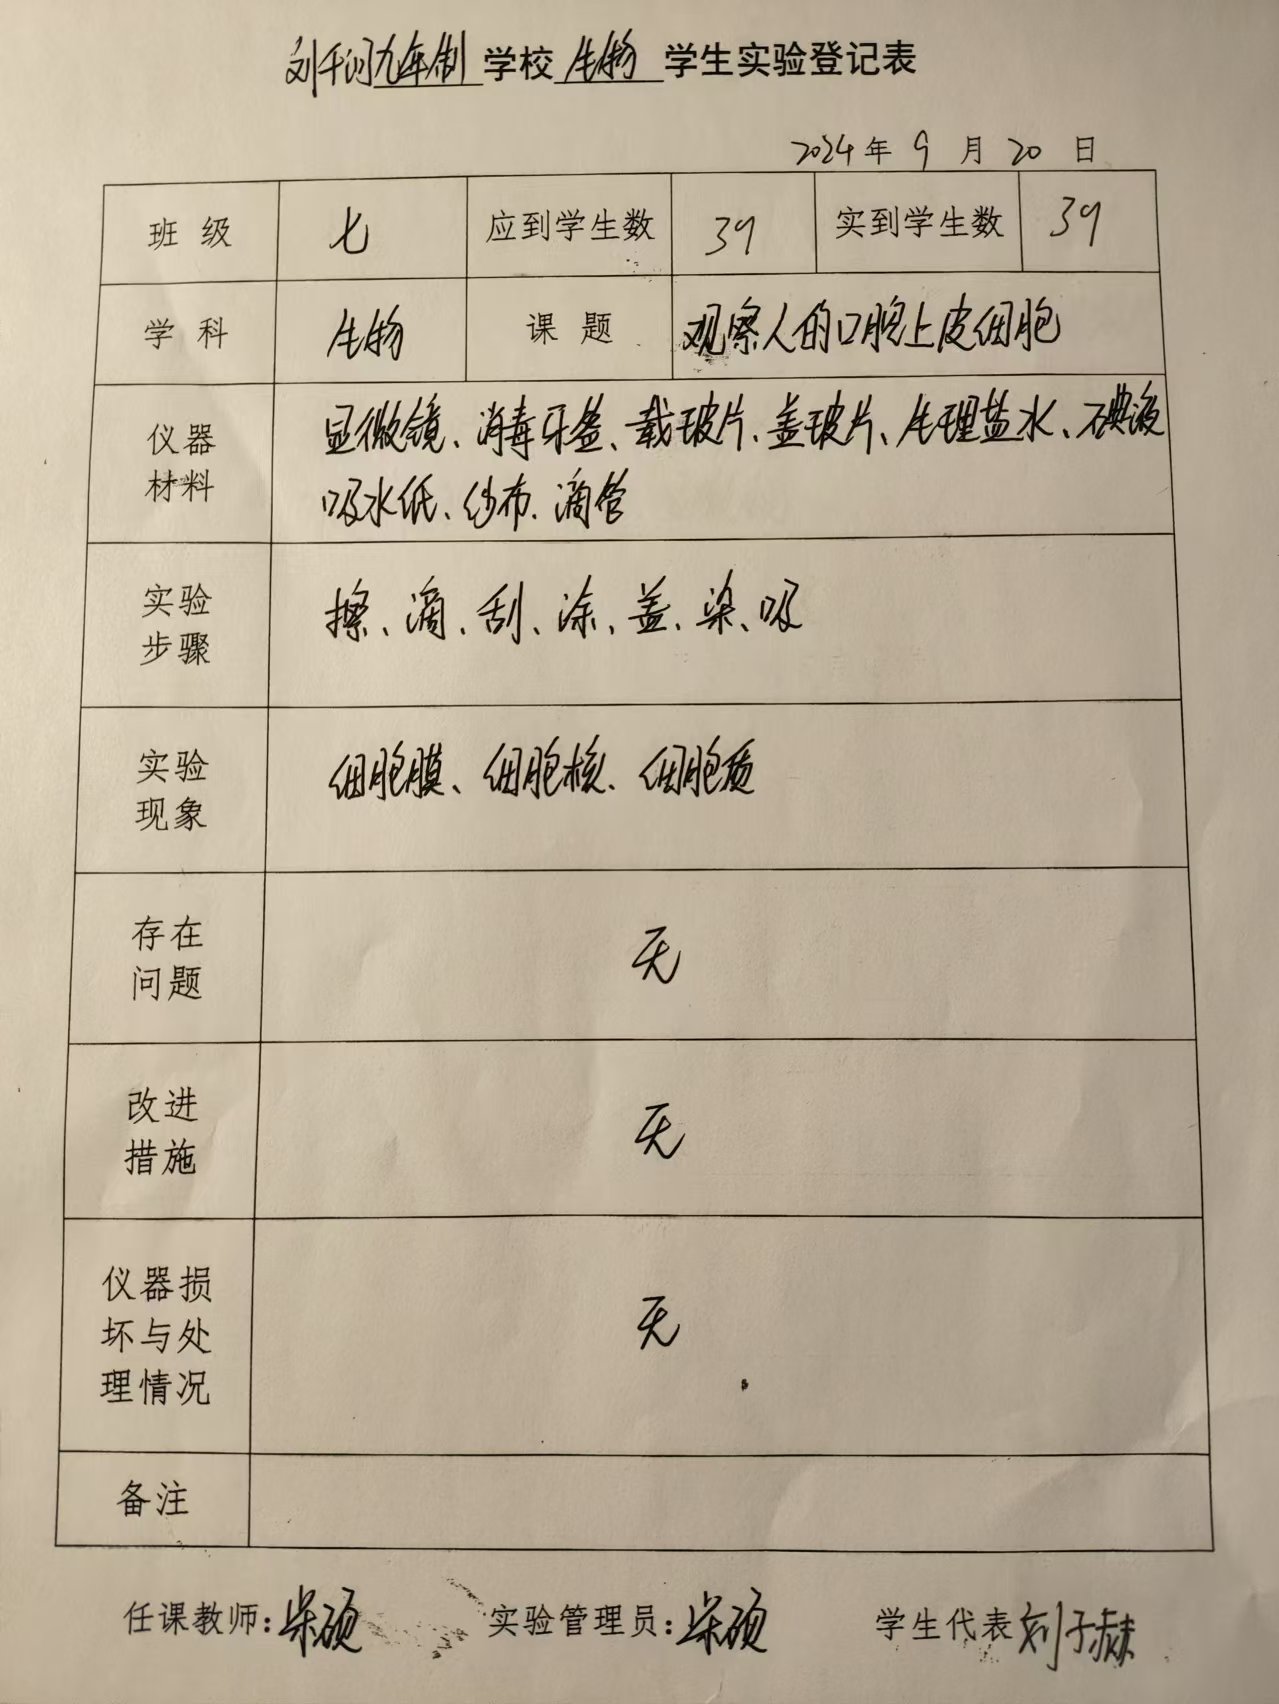 刘千河九年制学校生物学生实验登记表
2024年9月20日
班级 七 应到学生数 39 实到学生数 39
学科 生物 课题 观察人的口腔上皮细胞
仪器材料 显微镜、消毒牙签、载玻片、盖玻片、生理盐水、碘液
吸水纸、纱布、滴管
实验步骤 擦、滴、刮、涂、盖、染、吸
实验现象 细胞膜、细胞核、细胞质
存在问题 无
改进措施 无
仪器损坏与处理情况 无
备注
任课教师: 硕 实验管理员: 硕 学生代表 刘子赫